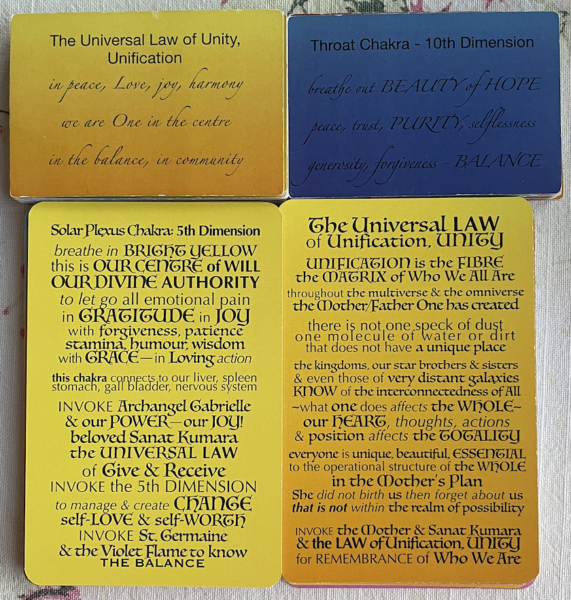 The Universal Law of Unity,
Unification
in peace, Love, joy, harmony
we are One in the centre
in the balance, in community
Throat Chakra - 10th Dimension
breathe out BEAUTY of HOPE
peace, trust, PURITY, selflessness
generosity, forgiveness - BALANCE
Solar Plexus Chakra: 5th Dimension
breathe in BRIGHT YELLOW
this is OUR CENTRE of WILL
OUR DIVINE AUTHORITY
to let go all emotional pain
in GRATITUDE in JOY
with forgiveness, patience
stamina, humour, wisdom
with GRACE—in Loving action
this chakra connects to our liver, spleen
stomach, gall bladder, nervous system
INVOKE Archangel Gabrielle
& our POWER—our JOY!
beloved Sanat Kumara
the UNIVERSAL LAW
of Give & Receive
INVOKE the 5th DIMENSION
to manage & create CHANGE
self-LOVE & self-WORTH
INVOKE St. Germaine
& the Violet Flame to know
THE BALANCE
The Universal LAW
of Unification, UNITY
UNIFICATION is the FIBRE
the MATRIX of Who We All Are
throughout the multiverse & the omniverse
the Mother/Father One has created
there is not one speck of dust
one molecule of water or dirt
that does not have a unique place
the kingdoms, our star brothers & sisters
& even those of very distant galaxies
KNOW of the interconnectedness of All
~what one does affects the WHOLE~
our HEART, thoughts, actions
& position affects the TOTALITY
everyone is unique, beautiful, ESSENTIAL
to the operational structure of the WHOLE
in the Mother's Plan
She did not birth us then forget about us
that is not within the realm of possibility
INVOKE the Mother & Sanat Kumara
& the LAW of Unification, UNITY
for REMEMBRANCE of Who We Are